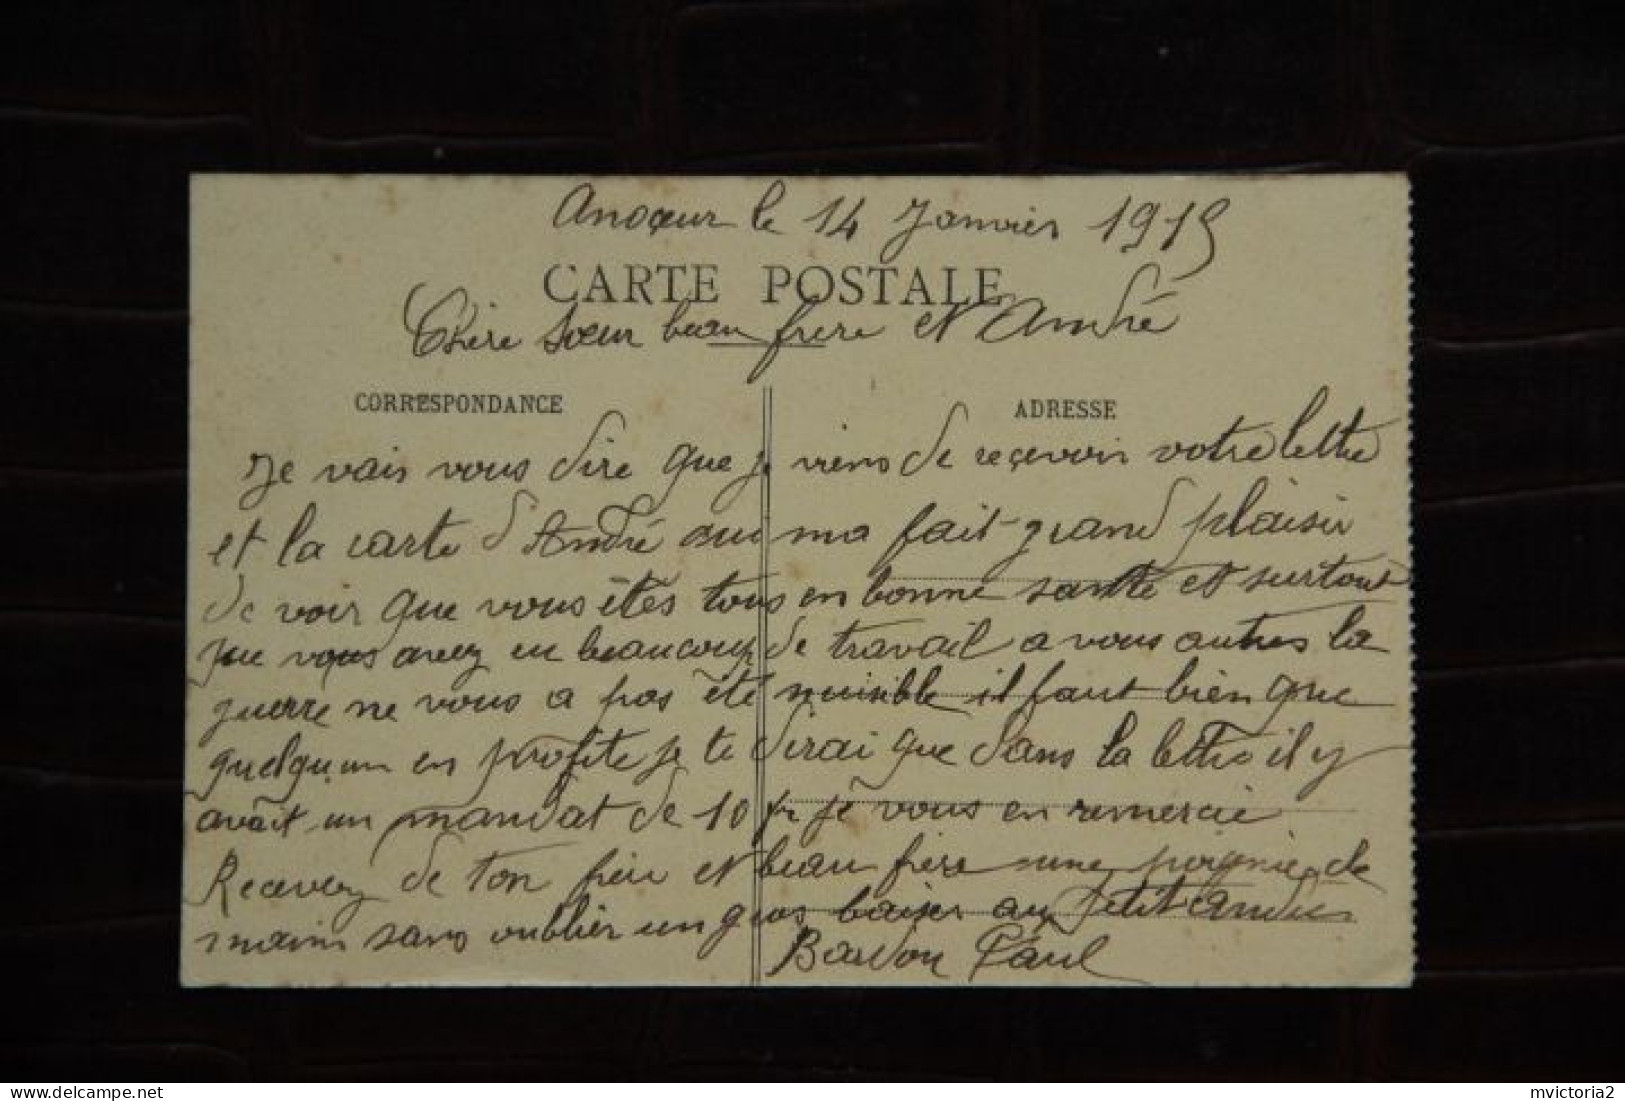 Anoceur le 14 Janvier 1915
CARTE POSTALE
Chère Soeur beau frère et André
CORRESPONDANCE
ADRESSE
Je vais vous dire que je viens de reçevoir votre lettre
et la carte d'André qui ma fait grand plaisir
de voir que vous êtes tous en bonne santé et surtout
que vous avez eu beaucoup de travail a vous autres la
guerre ne vous a pas été nuisible il faut bien que
quelqu'un en profite je te dirai que dans la lettre il y
avait un mandat de 10 fr je vous en remercie
Recevez de ton frère et beau frère une poignie de
main sans oublier un gros baiser au petit André
Bardou Paul
mvictoria2